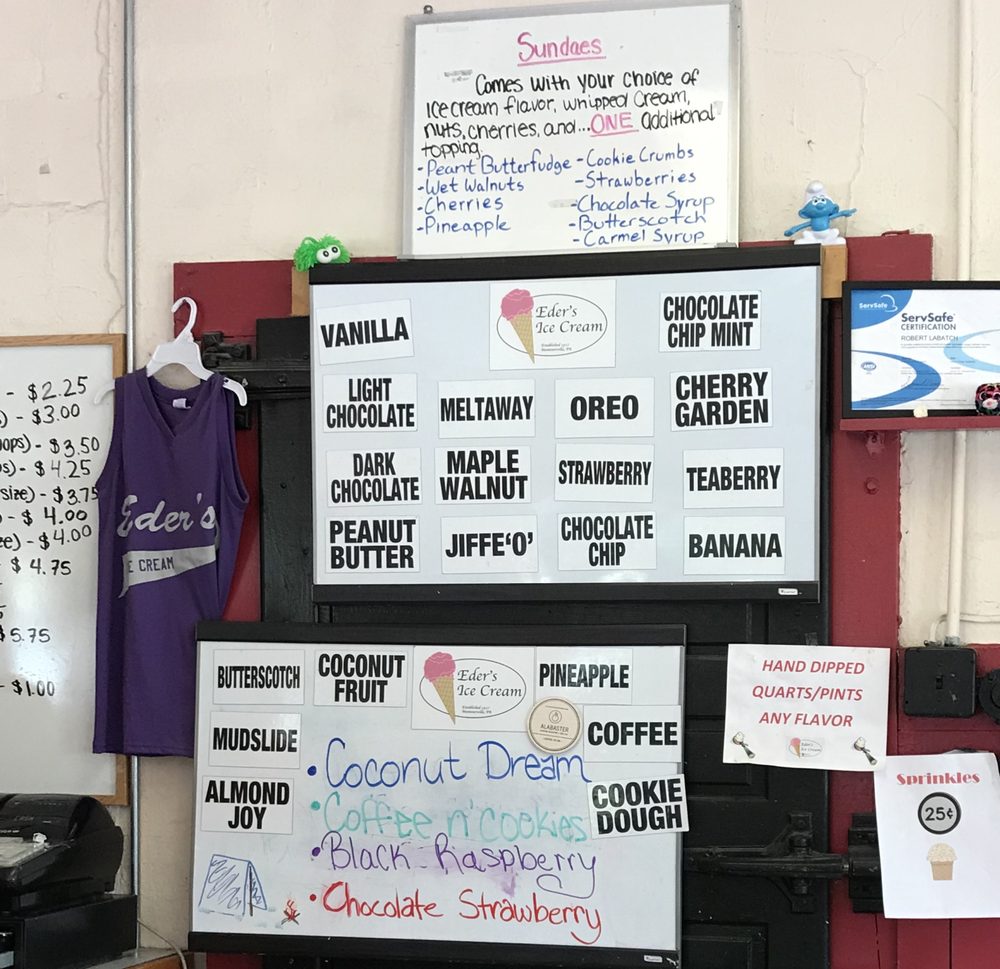 Sundaes
Comes with your choice of
Ice cream flavor, whipped Cream,
nuts, cherries, and...ONE additional
topping.
-Peant Butterfudge
-Wet Walnuts
-Cherries
-Pineapple
-Cookie Crumbs
-Strawberries
-Chocolate Syrup
-Butterscotch
-Carmel Syrup
- $2.25
) - $3.00
ops) - $3.50
s) - $4.25
size) - $3.75
- $4.00
ee) - $4.00
$4.75
$5.75
- $1.00
Eder's
E CREAM
VANILLA
Eder's
Ice Cream
CHOCOLATE
CHIP MINT
LIGHT
CHOCOLATE
MELTAWAY
OREO
CHERRY
GARDEN
DARK
CHOCOLATE
MAPLE
WALNUT
STRAWBERRY
TEABERRY
PEANUT
BUTTER
JIFFE'O'
CHOCOLATE
CHIP
BANANA
ServSafe
ServSafe
CERTIFICATION
ROBERT LABATCH
BUTTERSCOTCH
COCONUT
FRUIT
Eder's
Ice Cream
PINEAPPLE
ALABASTER
MUDSLIDE
COFFEE
ALMOND
JOY
COOKIE
DOUGH
•Coconut Dream
•Coffee n' cookies
•Black Raspberry
•Chocolate Strawberry
HAND DIPPED
QUARTS/PINTS
ANY FLAVOR
Sprinkles
25¢